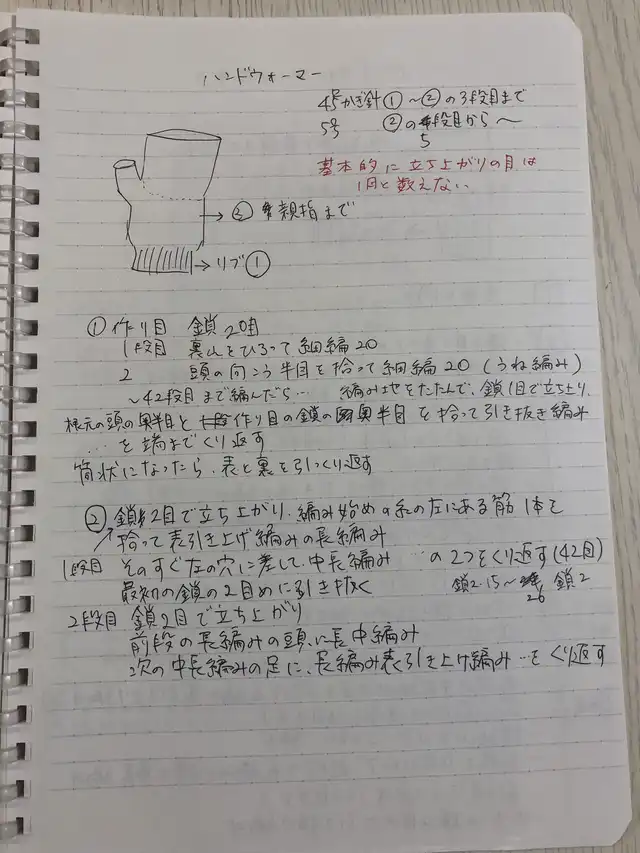 ハンドウォーマー
4号かぎ針 ①〜②の3段目まで
5号 ②の段目から〜
5
基本的に立ち上がりの目は
1目と数えない
② 親指まで
リブ①
① 作り目 鎖20目
1段目 裏山をひろって細編20
2 頭の向こう半目を拾って細編20(うね編み)
〜42段目まで編んだら… 編み地をたたんで、鎖1目で立ち上り、
根元の頭の奥半目と作り目の鎖の奥半目を拾って引き抜き編み
…を端までくり返す
筒状になったら、表と裏を引っくり返す
② 鎖2目で立ち上がり、編み始めの糸の左にある筋1本を
拾って表引き上げ編みの長編み
1段目 そのすぐ左の穴に差して、中長編み …の2つをくり返す(42目)
最初の鎖の2目めに引き抜く 鎖2. 15〜 鎖2
26
2段目 鎖2目で立ち上がり
前段の長編みの頭に長中編み
次の中長編みの足に、長編み表引き上げ編み…をくり返す